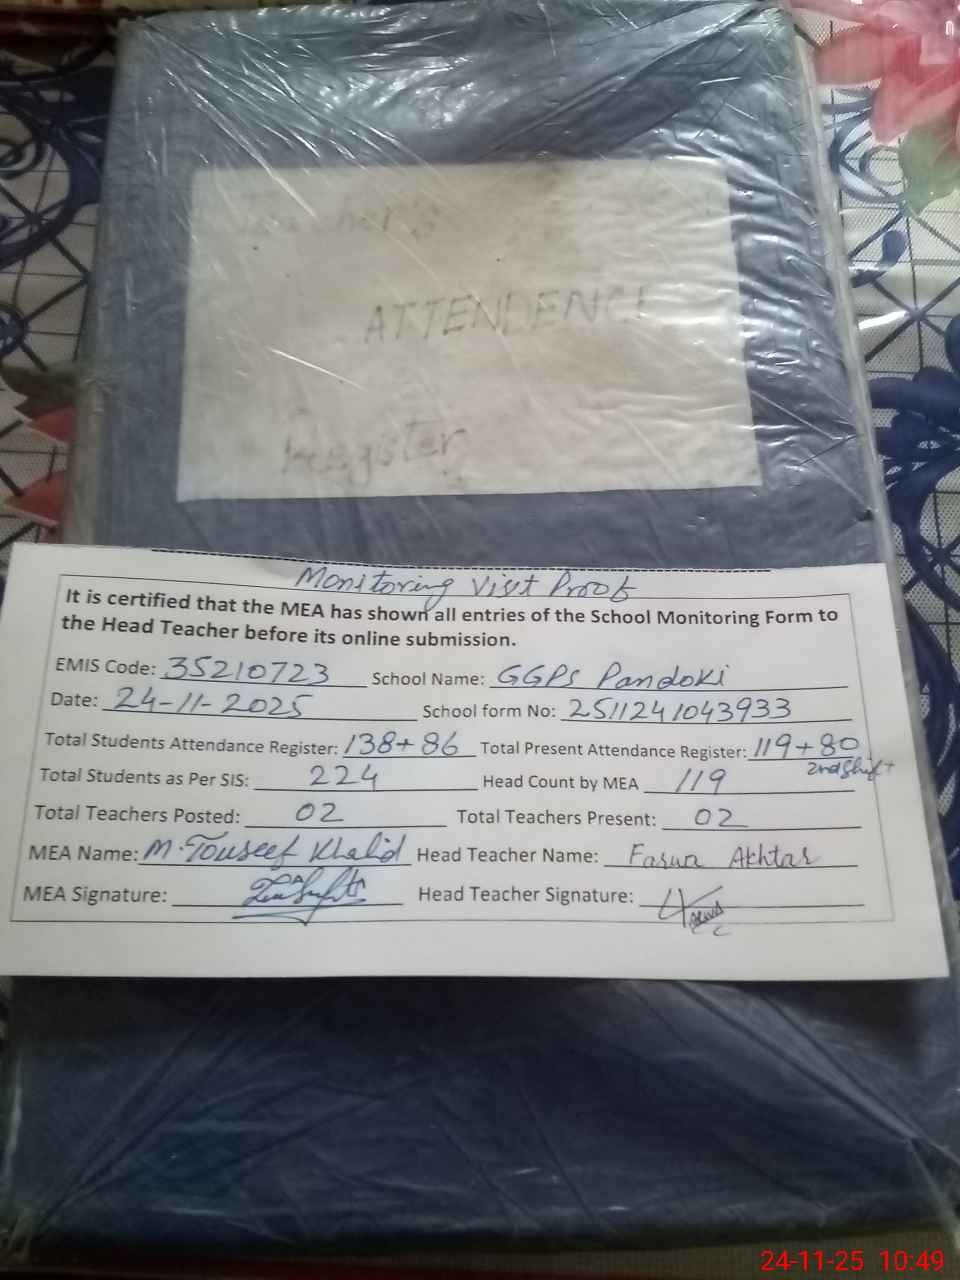 Teacher's
ATTENDENCE
Register
Monitoring Visit Proof
It is certified that the MEA has shown all entries of the School Monitoring Form to
the Head Teacher before its online submission.
EMIS Code: 35210723 School Name: GGPS Pandoki
Date: 24-11-2025 School form No: 2511241043933
Total Students Attendance Register: 138+86 Total Present Attendance Register: 119+80
2nd Shift
Total Students as Per SIS: 224 Head Count by MEA 119
Total Teachers Posted: 02 Total Teachers Present: 02
MEA Name: M. Touseef Khalid Head Teacher Name: Farwa Akhtar
MEA Signature: Head Teacher Signature:
24-11-25 10:49